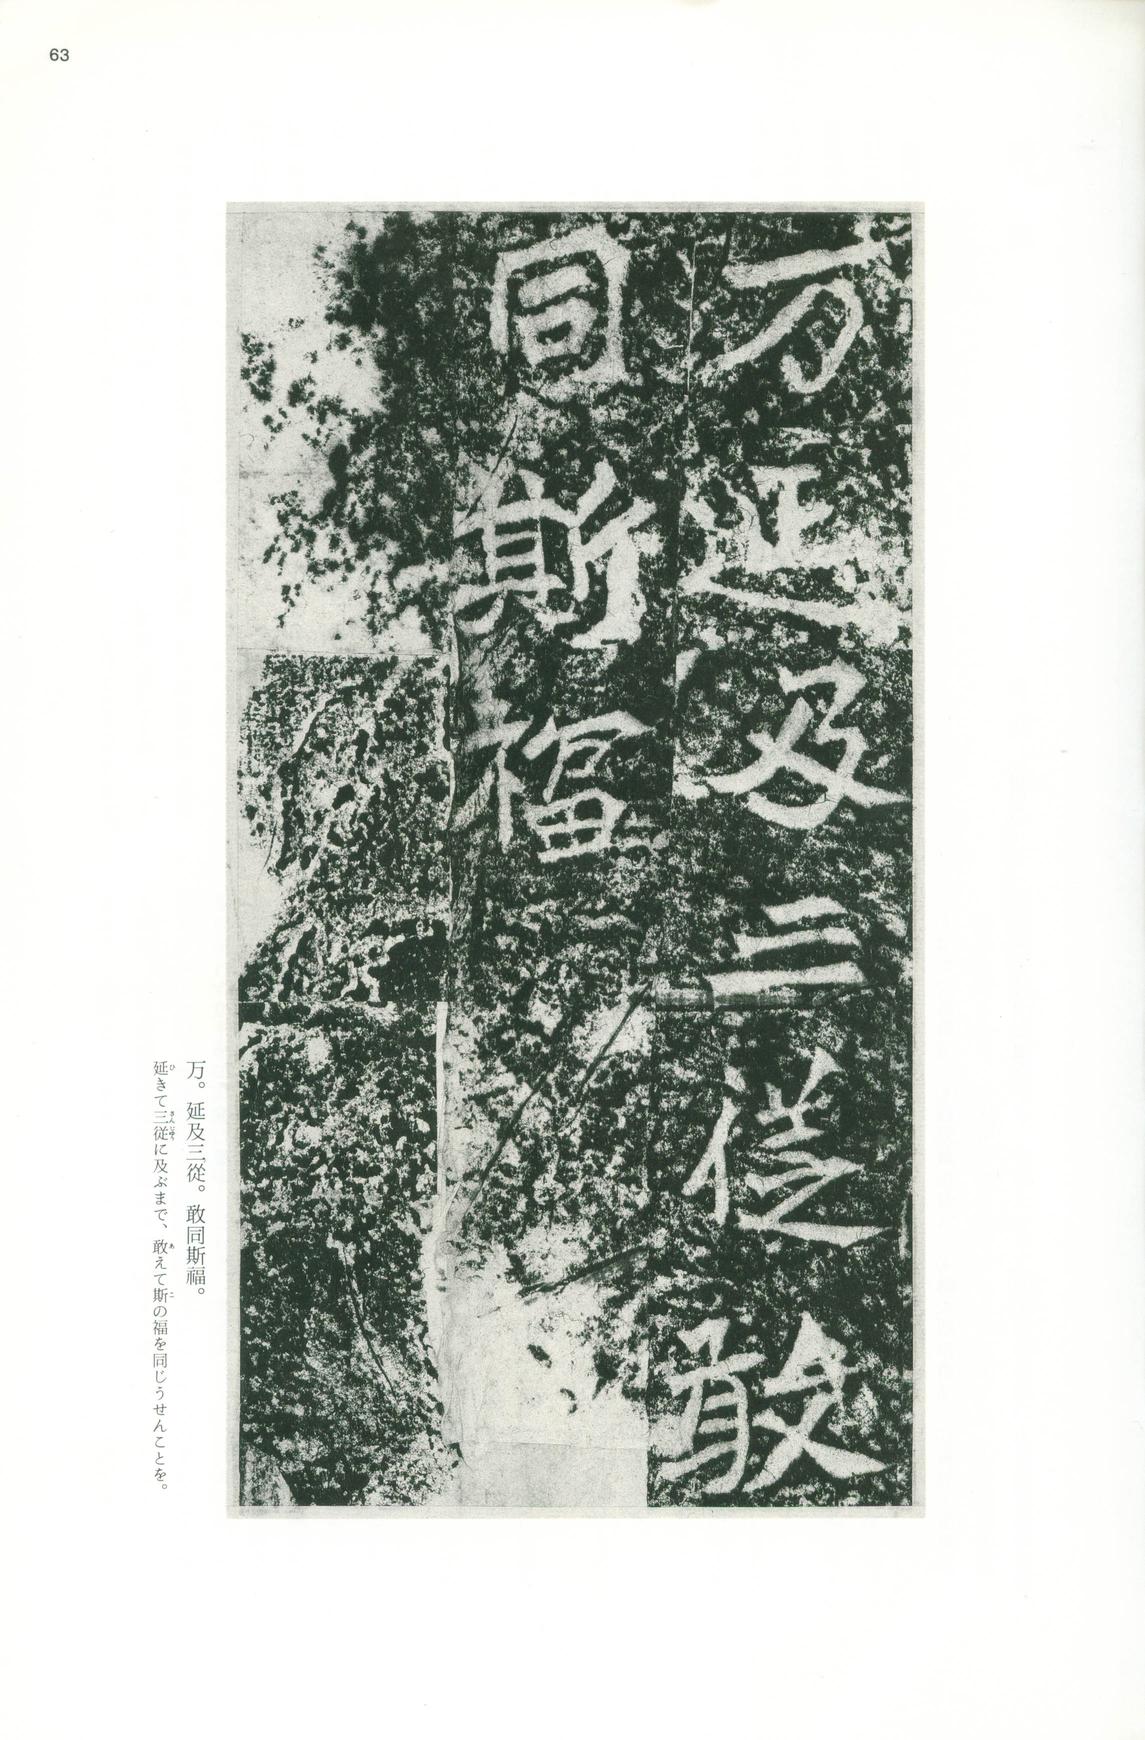 63
万延及三従敢
同斯福
万。延及三從。敢同斯福。
延きて三従に及ぶまで、敢えて斯の福を同じうせんことを。